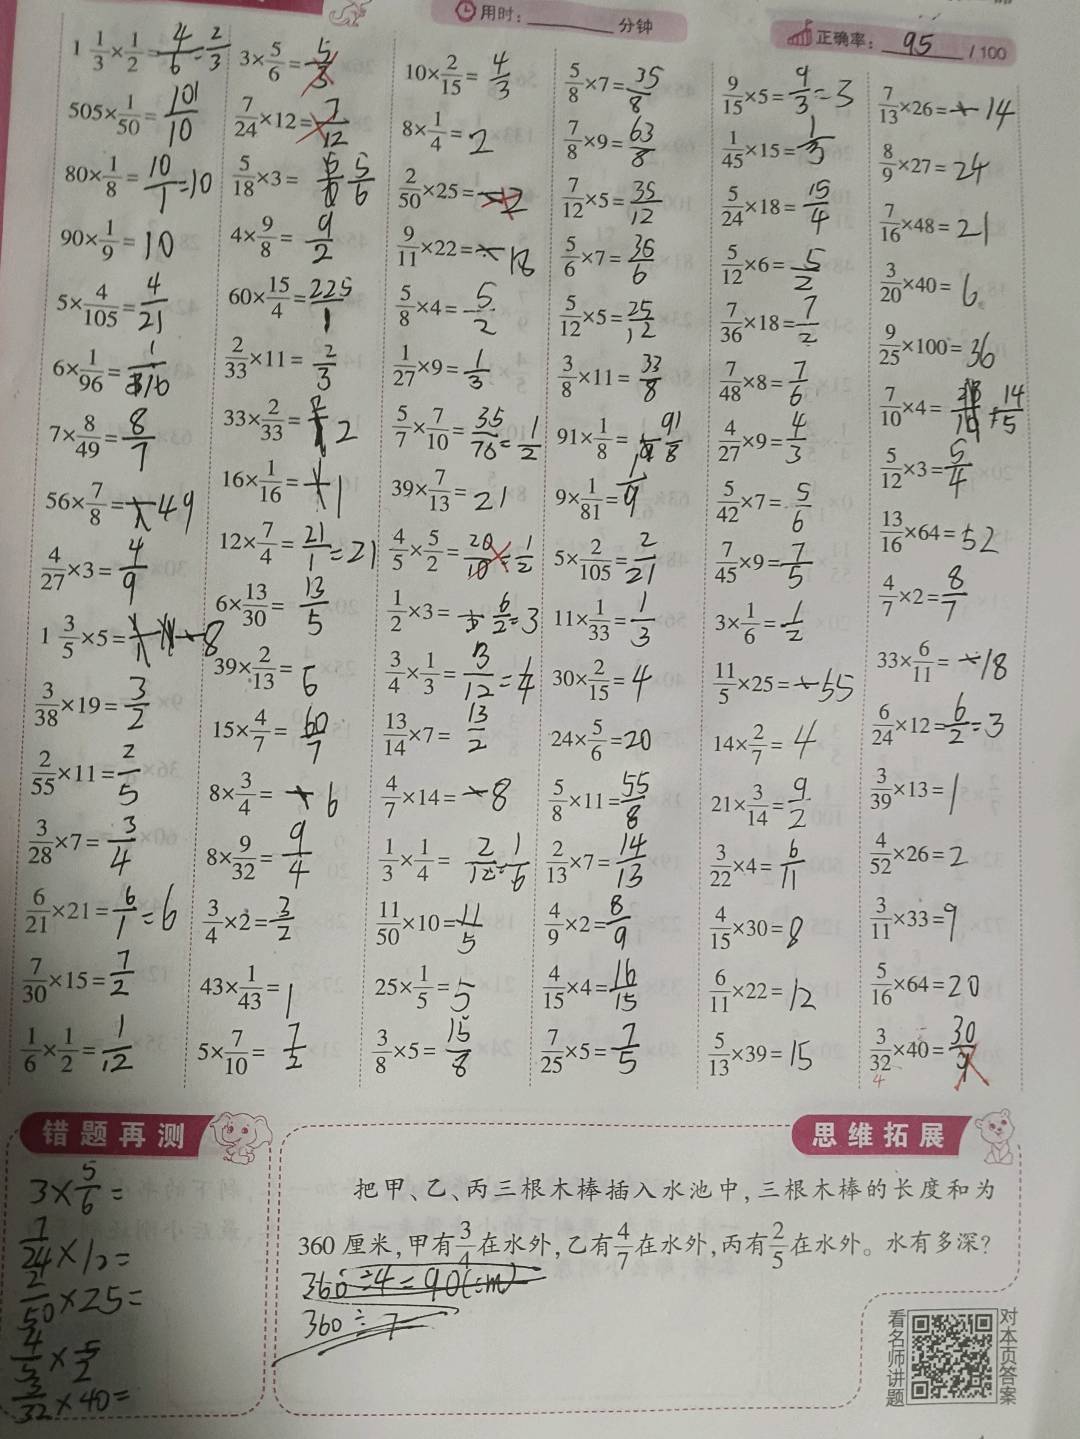 用时：______分钟
正确率：95 /100
1 1/3×1/2=4/6=2/3
505×1/50=101/10
80×1/8=10/1=10
90×1/9=10
5×4/105=4/21
6×1/96=1/16
7×8/49=8/7
56×7/8=49
4/27×3=4/9
1 3/5×5=8
3/38×19=3/2
2/55×11=2/5
3/28×7=3/4
6/21×21=6/1=6
7/30×15=7/2
1/6×1/2=1/12
3×5/6=5/3
7/24×12=7/12
5/18×3=5/6
4×9/8=9/2
60×15/4=225/1
2/33×11=2/3
33×2/33=2
16×1/16=1
12×7/4=21/1=21
6×13/30=13/5
39×2/13=6
15×4/7=60/7
8×3/4=6
8×9/32=9/4
3/4×2=3/2
43×1/43=1
5×7/10=7/2
10×2/15=4/3
8×1/4=2
2/50×25=2
9/11×22=18
5/8×4=5/2
1/27×9=1/3
5/7×7/10=35/70=1/2
39×7/13=21
4/5×5/2=20/10=1/2
1/2×3=6/2=3
3/4×1/3=3/12=1/4
13/14×7=13/2
4/7×14=8
1/3×1/4=2/12=1/6
11/50×10=11/5
25×1/5=5
3/8×5=15/8
5/8×7=35/8
7/8×9=63/8
7/12×5=35/12
5/6×7=36/6
5/12×5=25/12
3/8×11=33/8
91×1/8=91/8
9×1/81=1/9
5×2/105=2/21
11×1/33=1/3
30×2/15=4
24×5/6=20
5/8×11=55/8
2/13×7=14/13
4/9×2=8/9
4/15×4=16/15
7/25×5=7/5
9/15×5=9/3=3
1/45×15=1/3
5/24×18=15/4
5/12×6=5/2
7/36×18=7/2
7/48×8=7/6
4/27×9=4/3
5/42×7=5/6
7/45×9=7/5
3×1/6=1/2
11/5×25=55
14×2/7=4
21×3/14=9/2
3/22×4=6/11
4/15×30=8
6/11×22=12
5/13×39=15
7/13×26=14
8/9×27=24
7/16×48=21
3/20×40=6
9/25×100=36
7/10×4=28/10=14/5
5/12×3=5/4
13/16×64=52
4/7×2=8/7
33×6/11=18
6/24×12=6/2=3
3/39×13=1
4/52×26=2
3/11×33=9
5/16×64=20
3/32×40=30/9
4
错题再测
3×5/6=
7/24×12=
2/50×25=
4/5×5/2
3/32×40=
思维拓展
把甲、乙、丙三根木棒插入水池中，三根木棒的长度和为
360厘米，甲有3/4在水外，乙有4/7在水外，丙有2/5在水外。水有多深？
360÷4=90(cm)
360÷7
看名师讲题
对本页答案